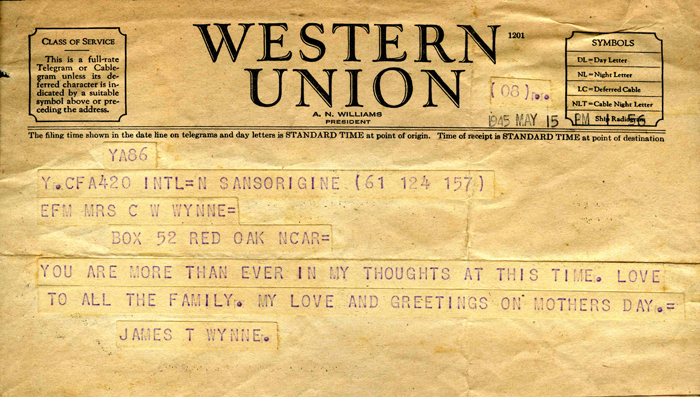 WESTERN
UNION
1201
A. N. WILLIAMS
PRESIDENT
CLASS OF SERVICE
This is a full-rate
Telegram or Cable-
gram unless its de-
ferred character is in-
dicated by a suitable
symbol above or pre-
ceding the address.
SYMBOLS
DL=Day Letter
NL=Night Letter
LC=Deferred Cable
NLT=Cable Night Letter
Ship Radiogram
(08)
1945 MAY 15 PM 56
The filing time shown in the date line on telegrams and day letters is STANDARD TIME at point of origin. Time of receipt is STANDARD TIME at point of destination
YA86
Y.CFA420 INTL=N SANSORIGINE (61 124 157)
EFM MRS C W WYNNE=
BOX 52 RED OAK NCAR=
YOU ARE MORE THAN EVER IN MY THOUGHTS AT THIS TIME. LOVE
TO ALL THE FAMILY. MY LOVE AND GREETINGS ON MOTHERS DAY.=
JAMES T WYNNE.